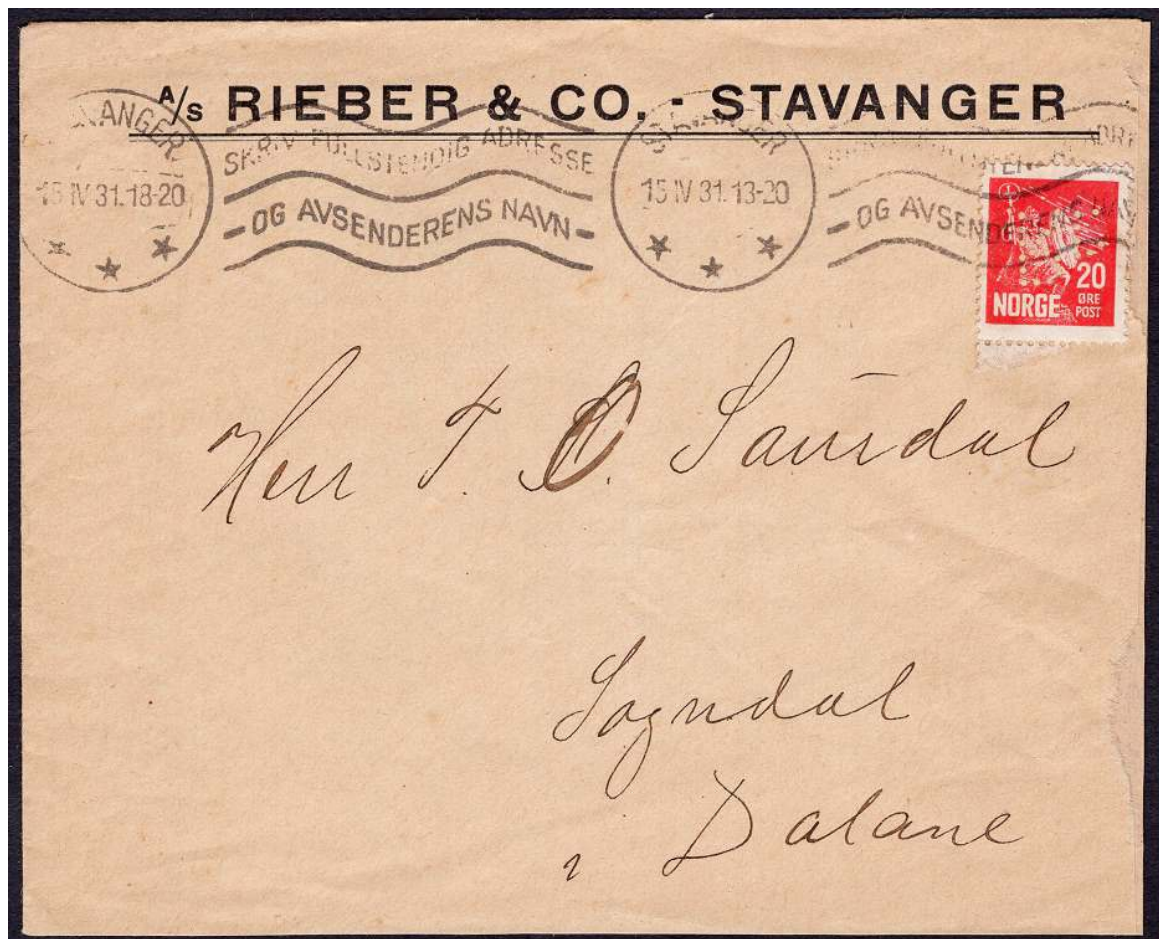 A/S RIEBER & CO. - STAVANGER
STAVANGER
15 IV 31. 18-20
SKRIV FULLSTENDIG ADRESSE
- OG AVSENDERENS NAVN -
STAVANGER
15 IV 31. 18-20
OG AVSENDERENS
20
NORGE ØRE
POST
Herr T. O. Saurdal
Sogndal
i Dalane